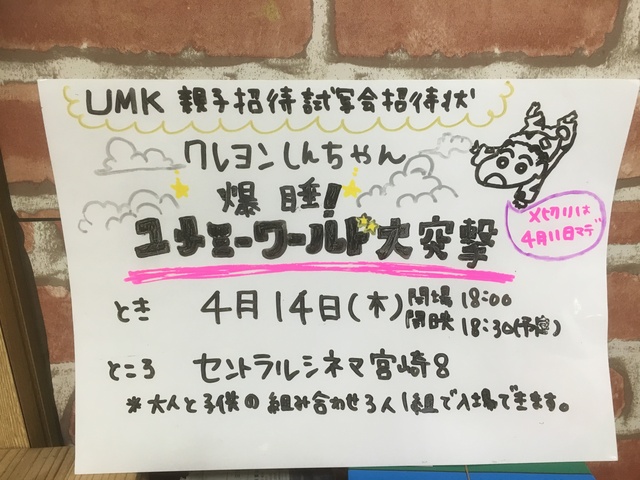 UMK 親子招待試写会招待状
クレヨンしんちゃん
爆睡!
ユメミーワールド大突撃
〆切りは
4月11日マデ
とき 4月14日(木) 開場 18:00
開映 18:30(予定)
ところ セントラルシネマ宮崎8
※大人と子供の組み合わせ3人1組で入場できます。